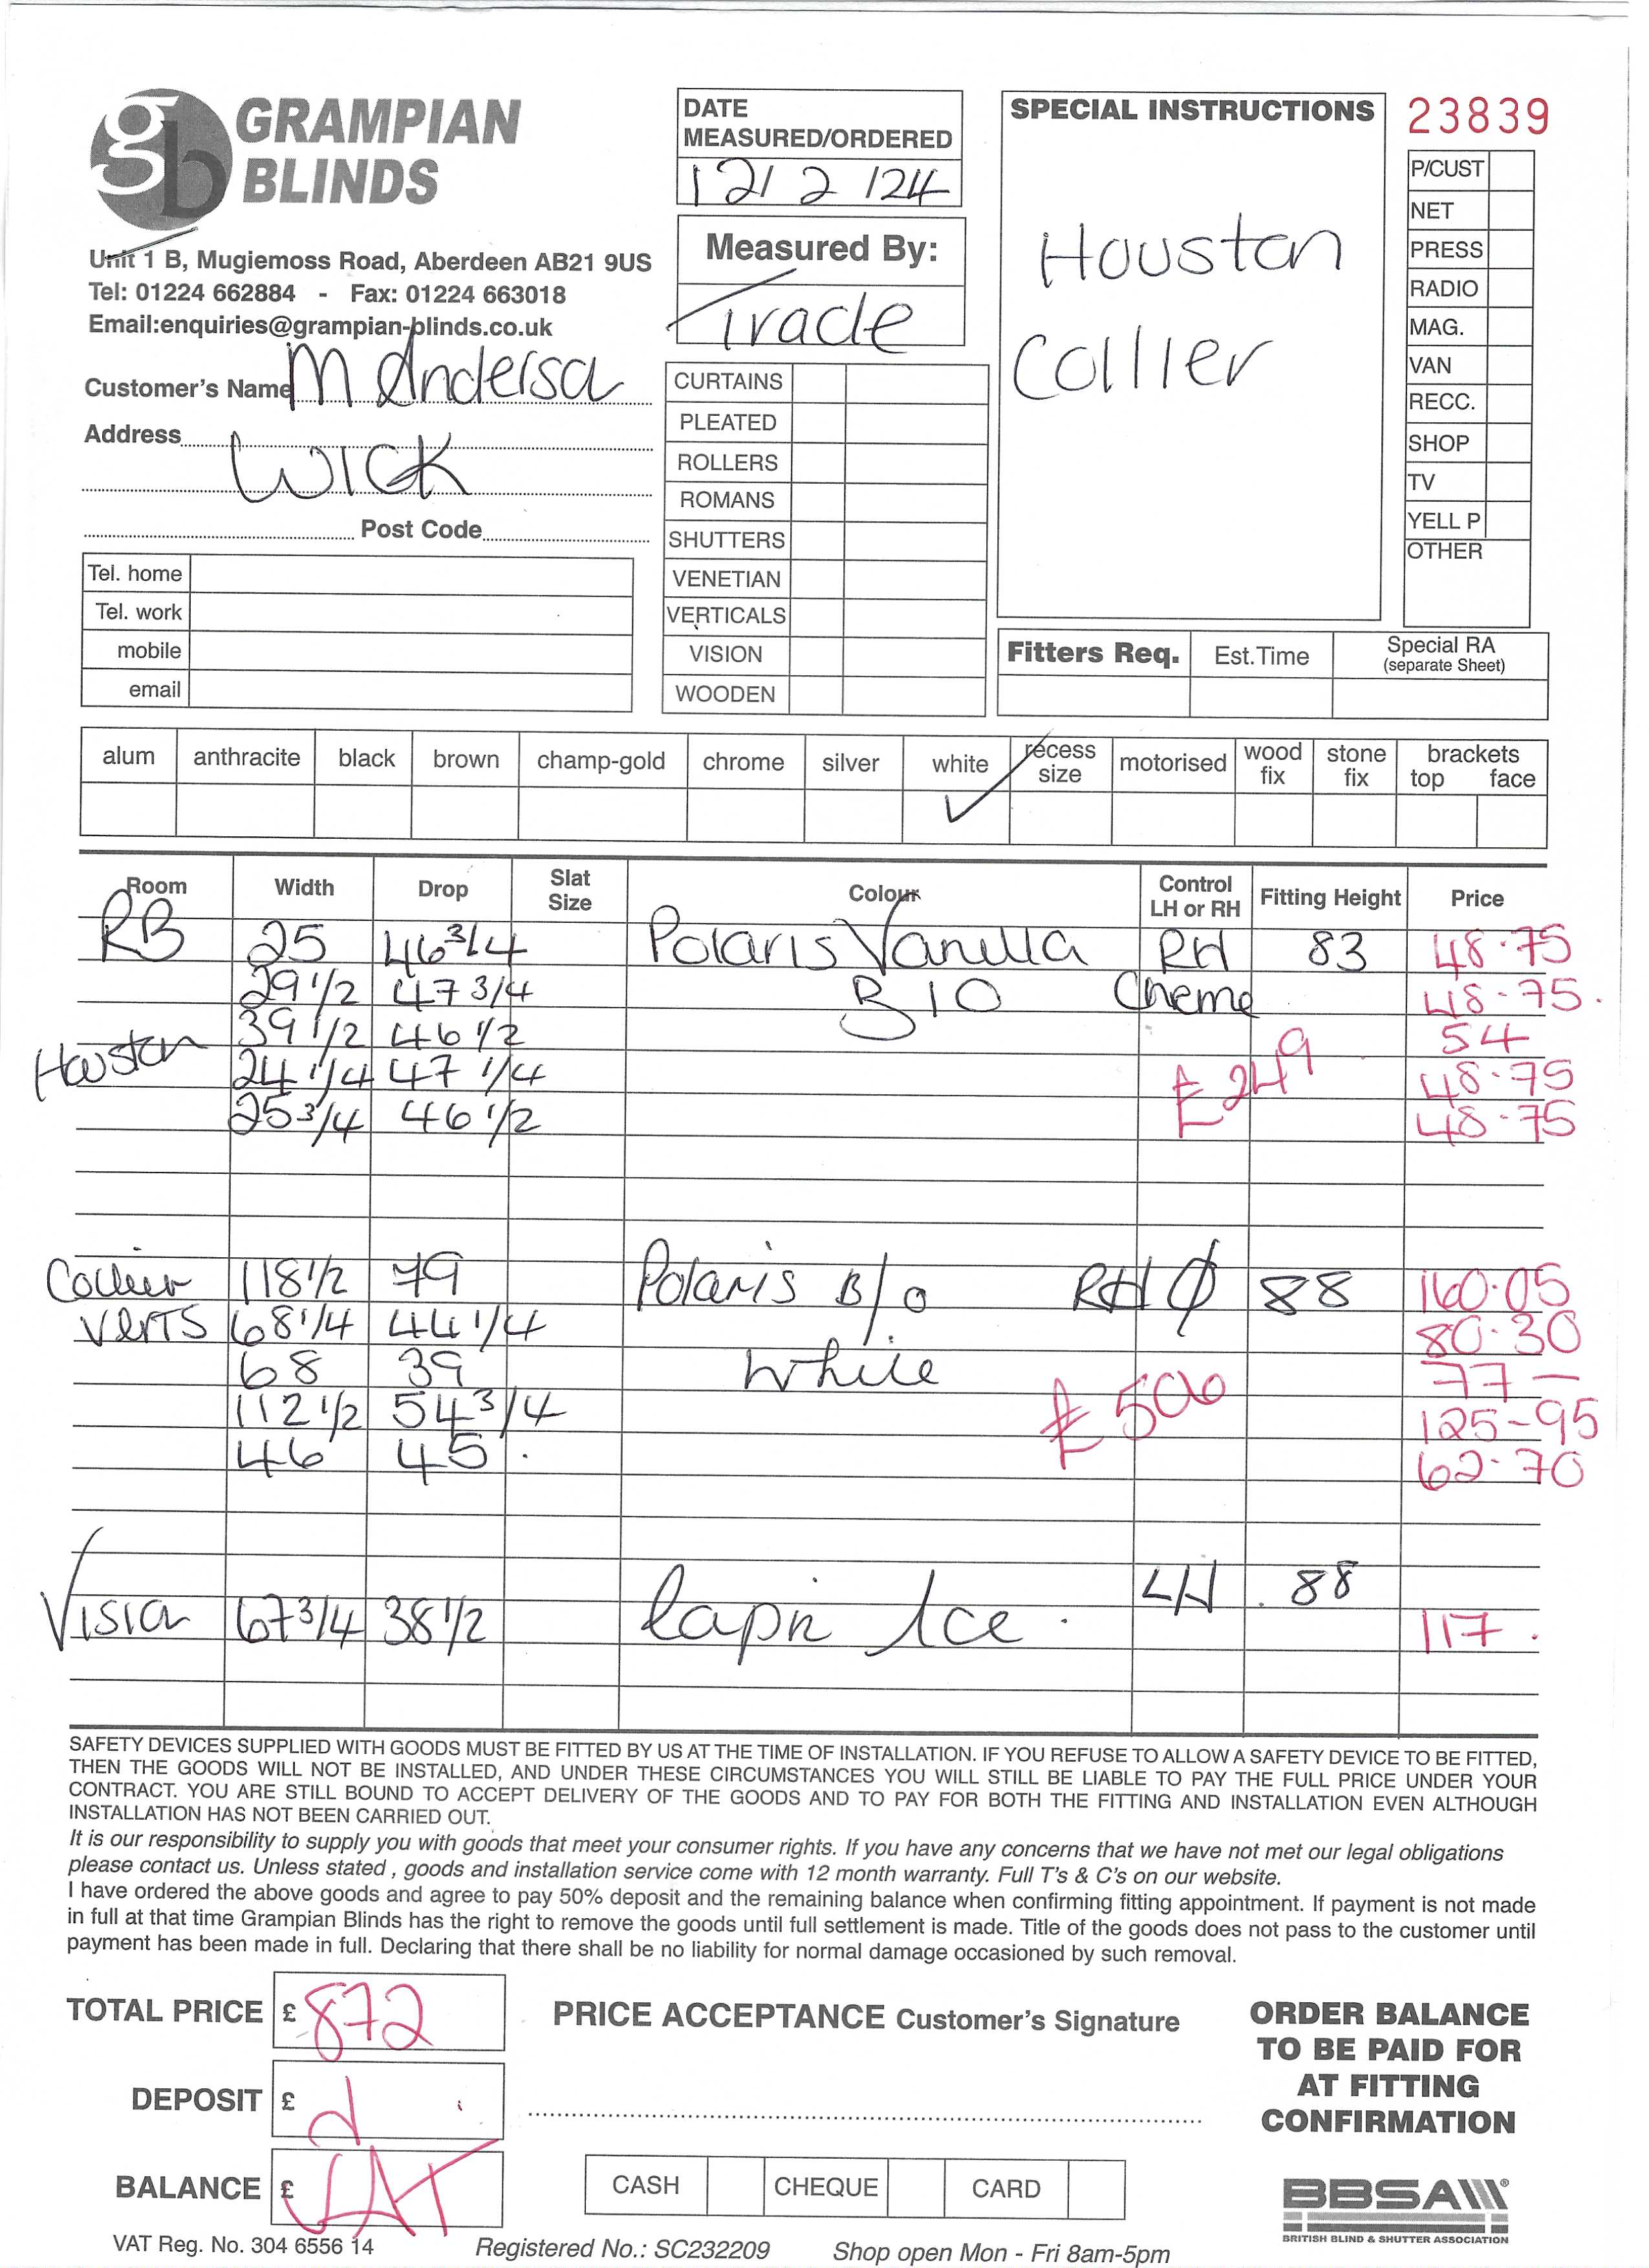 gb GRAMPIAN BLINDS
Unit 1 B, Mugiemoss Road, Aberdeen AB21 9US
Tel: 01224 662884 - Fax: 01224 663018
Email:enquiries@grampian-blinds.co.uk
Customer's Name M Anderson
Address Wick
Post Code
Tel. home
Tel. work
mobile
email
DATE
MEASURED/ORDERED
12/2/24
Measured By:
Trade
CURTAINS
PLEATED
ROLLERS
ROMANS
SHUTTERS
VENETIAN
VERTICALS
VISION
WOODEN
SPECIAL INSTRUCTIONS
Houston
Collier
23839
P/CUST
NET
PRESS
RADIO
MAG.
VAN
RECC.
SHOP
TV
YELL P
OTHER
Fitters Req. Est.Time Special RA
(separate Sheet)
alum anthracite black brown champ-gold chrome silver white recess size motorised wood fix stone fix brackets top face
✓
Room Width Drop Slat Size Colour Control LH or RH Fitting Height Price
RB 25 46 3/4 Polaris Vanilla RH 83 48.75
29 1/2 47 3/4 B/O Chrome 48-75.
39 1/2 46 1/2 54
Houston 24 1/4 47 1/4 £249 48.75
25 3/4 46 1/2 48-75
Collier 118 1/2 79 Polaris B/O RH 88 160.05
Verts 68 1/4 44 1/4 80.30
68 39 White 77 —
112 1/2 54 3/4 £506 125-95
46 45 62.70
Vision 67 3/4 38 1/2 Capri Ice. LH 88 117.
SAFETY DEVICES SUPPLIED WITH GOODS MUST BE FITTED BY US AT THE TIME OF INSTALLATION. IF YOU REFUSE TO ALLOW A SAFETY DEVICE TO BE FITTED,
THEN THE GOODS WILL NOT BE INSTALLED, AND UNDER THESE CIRCUMSTANCES YOU WILL STILL BE LIABLE TO PAY THE FULL PRICE UNDER YOUR
CONTRACT. YOU ARE STILL BOUND TO ACCEPT DELIVERY OF THE GOODS AND TO PAY FOR BOTH THE FITTING AND INSTALLATION EVEN ALTHOUGH
INSTALLATION HAS NOT BEEN CARRIED OUT.
It is our responsibility to supply you with goods that meet your consumer rights. If you have any concerns that we have not met our legal obligations
please contact us. Unless stated , goods and installation service come with 12 month warranty. Full T's & C's on our website.
I have ordered the above goods and agree to pay 50% deposit and the remaining balance when confirming fitting appointment. If payment is not made
in full at that time Grampian Blinds has the right to remove the goods until full settlement is made. Title of the goods does not pass to the customer until
payment has been made in full. Declaring that there shall be no liability for normal damage occasioned by such removal.
TOTAL PRICE £ 872
DEPOSIT £
BALANCE £ VAT
PRICE ACCEPTANCE Customer's Signature
CASH CHEQUE CARD
ORDER BALANCE
TO BE PAID FOR
AT FITTING
CONFIRMATION
BBSA
BRITISH BLIND & SHUTTER ASSOCIATION
VAT Reg. No. 304 6556 14 Registered No.: SC232209 Shop open Mon - Fri 8am-5pm